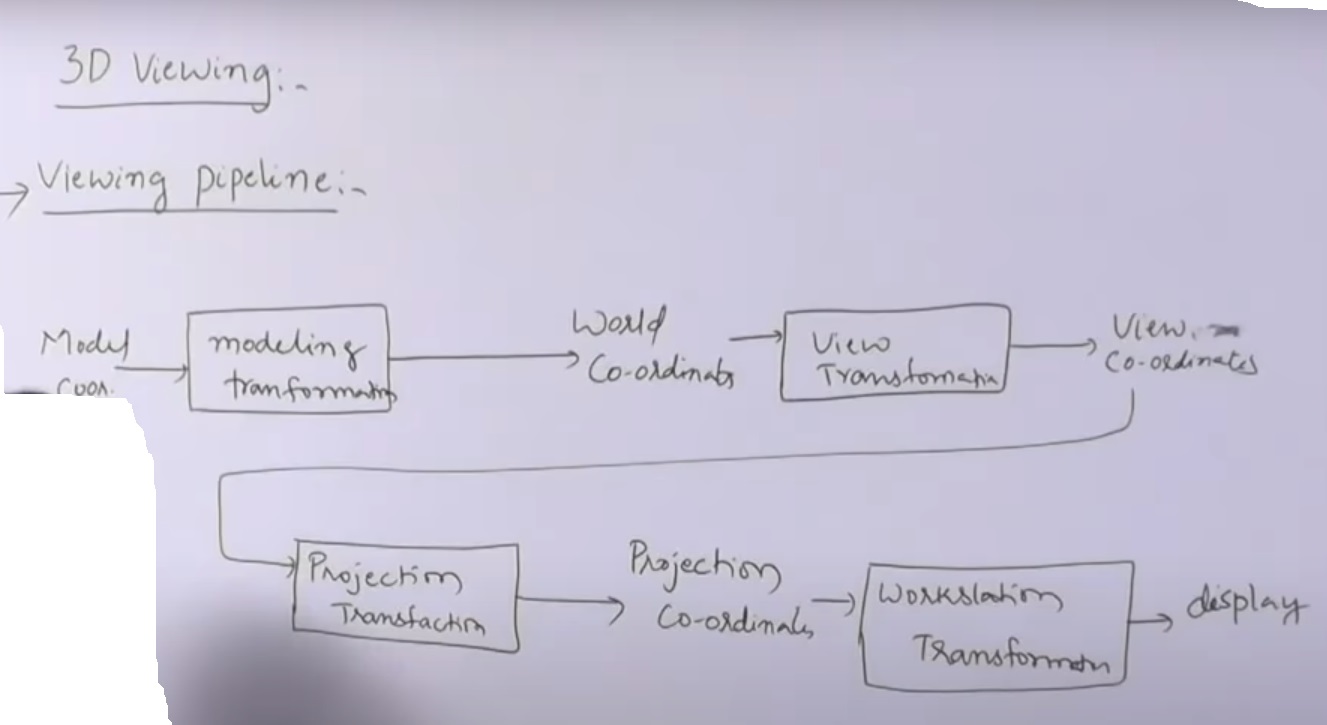 3D Viewing:-
→ Viewing pipeline:-
Model
Coor.
modeling
tranformation
World
Co-ordinats
View
Transfomatin
View.
Co-ordinates
Projection
Transfaction
Projection
Co-ordinats
Workstation
Transformatn
display